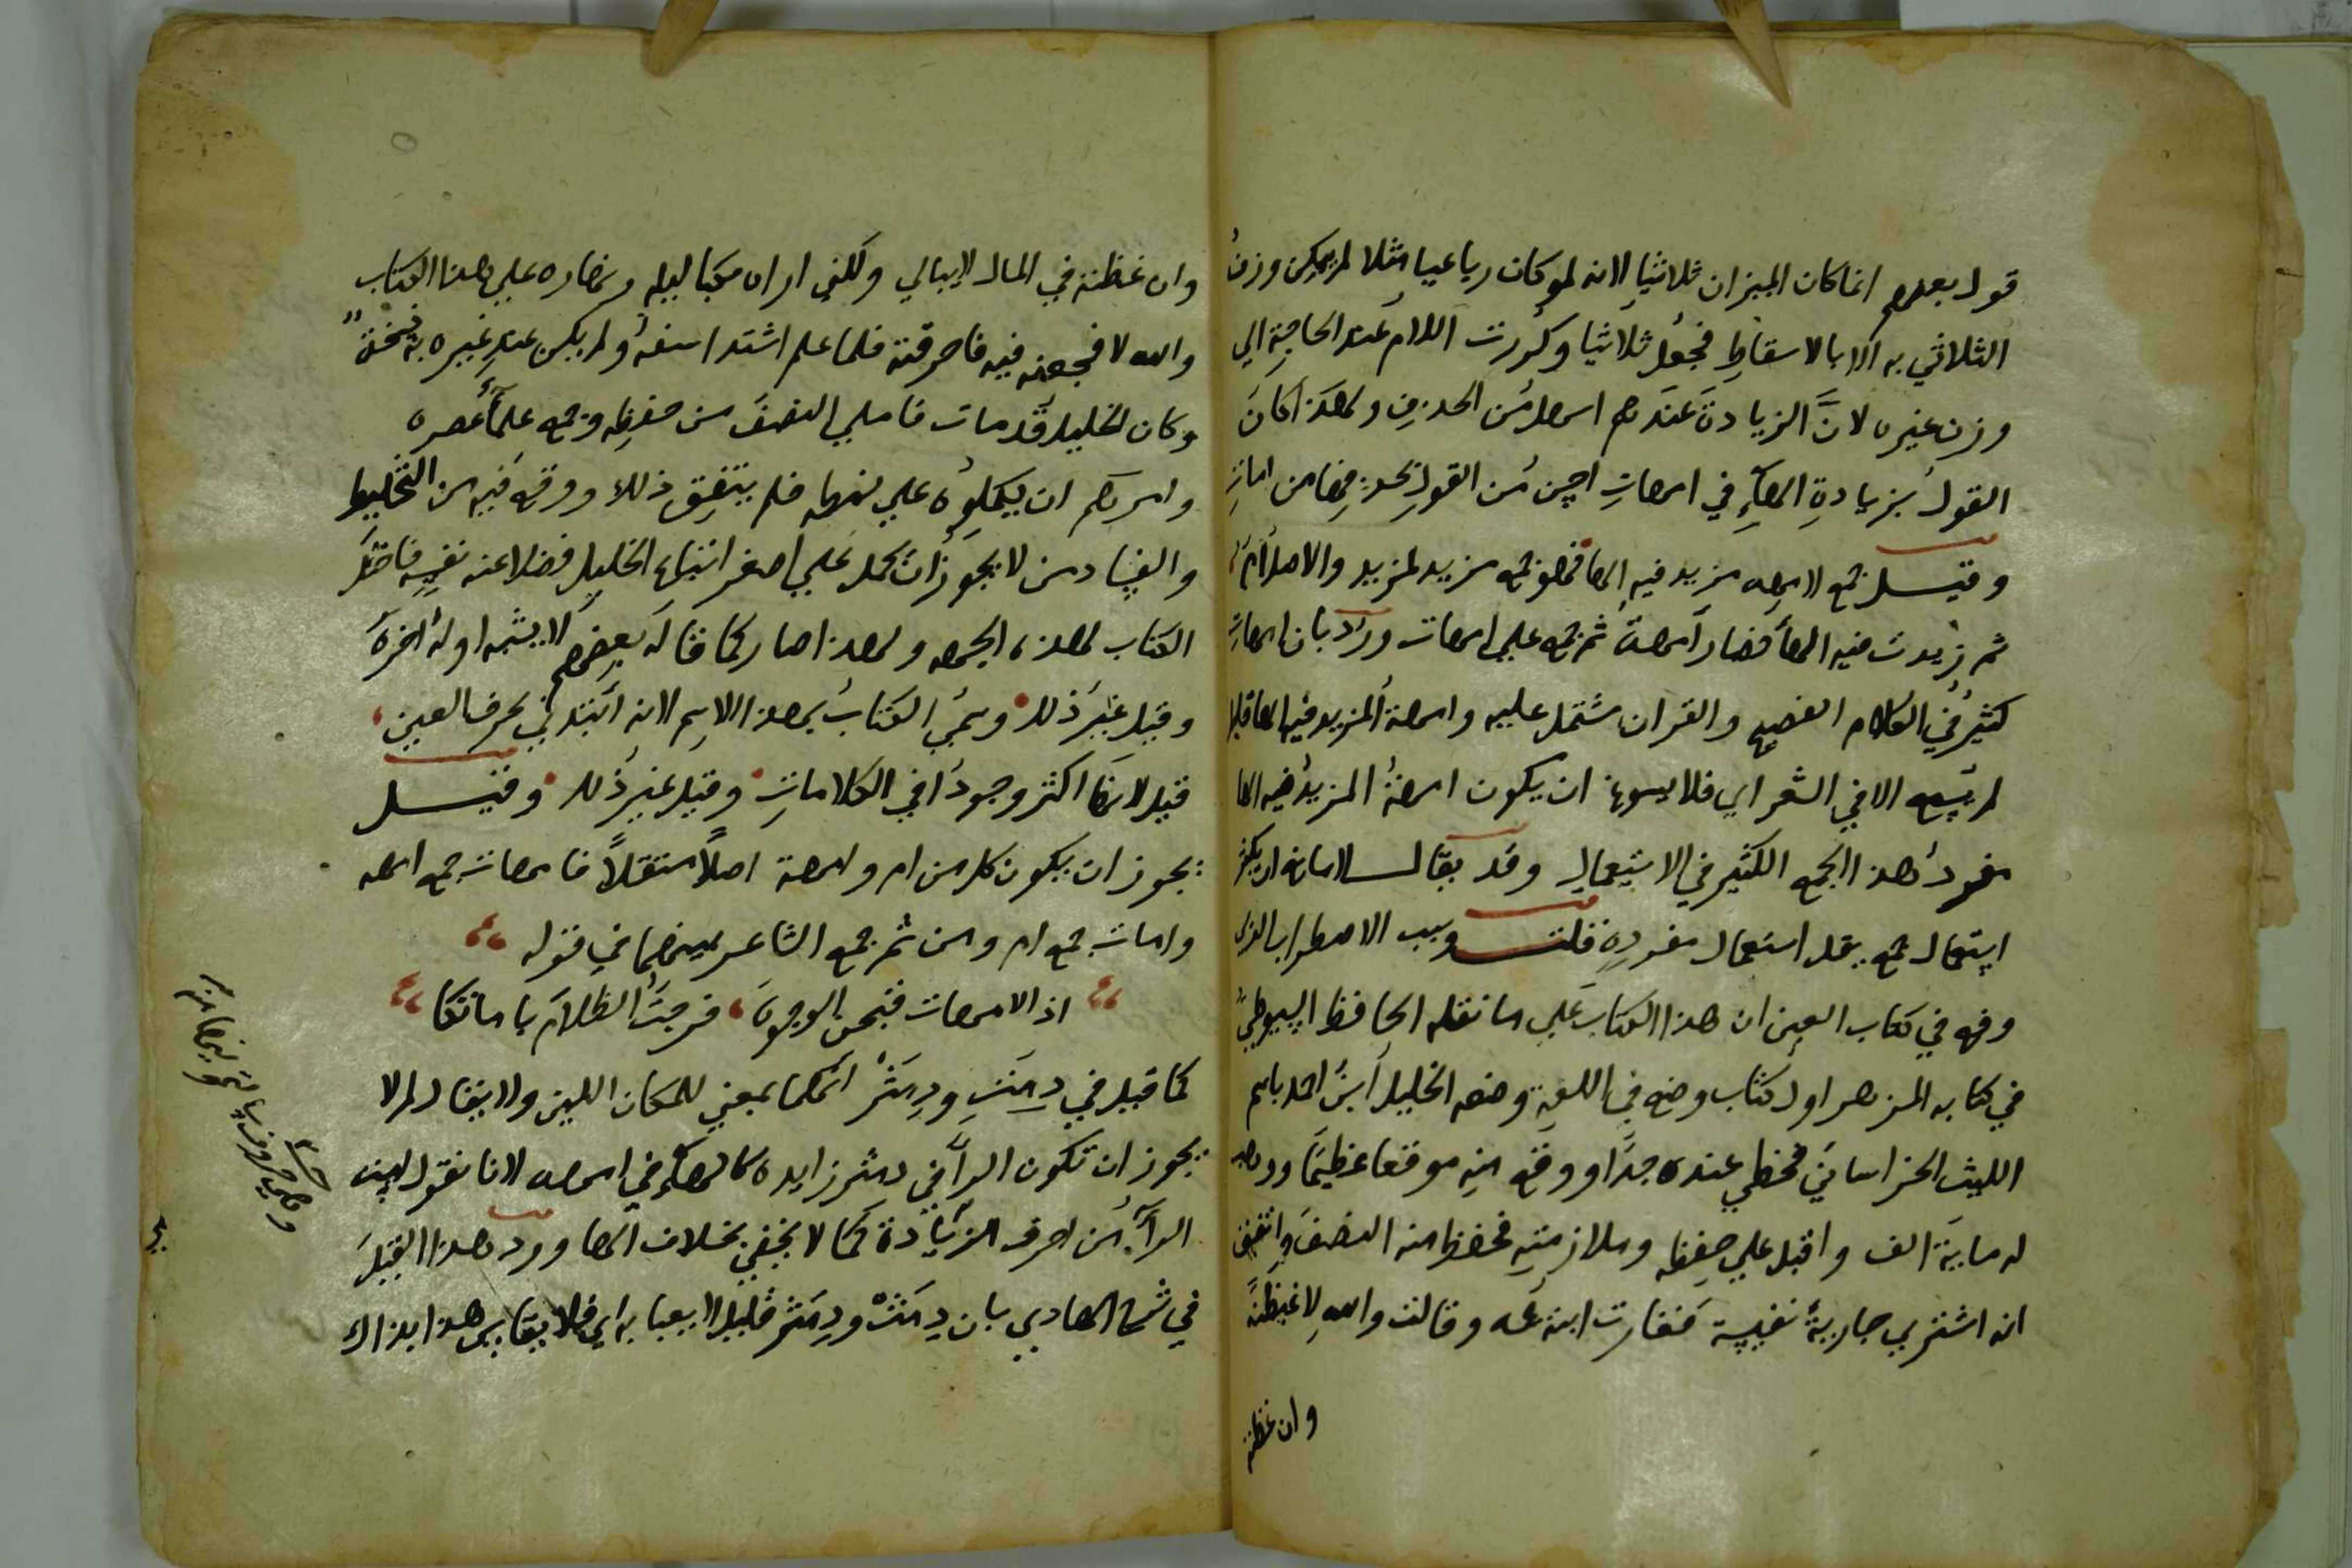 قول بعضهم انما كان الميزان ثلاثيا لانه لو كان رباعيا مثلا لم يمكن وزن
الثلاثي به الا بالاسقاط فجعل ثلاثيا وكررت اللام عند الحاجة الي
وزن غيره لانَّ الزيادة عندهم اسهل من الحذف ولهذا كانَ
القول بزيادةِ الهآءِ في امهاتِ احسن من القول بحذفها من امات
وقيل جمع لامهه مزيد فيه الها فهو جمع مزيد لمزيد والاصل أم
ثم زيدت فيه الهأ فصار أمهة ثم جمع علي امهات وردَّ بان امهات
كثيرُ في الكلام الفصيح والقران مشتمل عليه وامهة المزيد فيها الها قليلا
لم يسمع الا في الشعر اي فلا يسوغ ان يكون امهة المزيد فيه الها
مفردُ هذا الجمع الكثير في الاستعمال وقد يقال لا مانع ان يكثر
استعمال جمع يقل استعمال مفرده قلت وسبب الاضطراب الذى
وقع في كتاب العين ان هذا الكتاب علي ما نقله الحافظ السيوطيُّ
في كتابه المزهر اول كتاب وضع في اللغة وضعه الخليل أبنُ احمد باسم
الليث الخراساني فحظي عنده جدًا ووقع منه موقعا عظيمًا ووهب
له ماية الف واقبل علي حفظه وملازمته فحفظ منه النصف واتفق
انه اشتري جاريةً نفيسة فغارت ابنة عمه وقالت والله لاغيظنهُ
وان غظته
وان غظته في المال لا يبالي ولكني اراه مكبا ليله ونهاره علي هذا الكتاب
والله لافجعنه فيه فاحرقته فلما علم اشتد اسفه ولم يكن عند غيره نسخة
وكان الخليل قد مات فاملي النصف من حفظه وجمع علمأءُ عصره
وامرهم ان يكملوه علي نمطه فلم يتفق ذلك ووقع فيه من التخليط
والفساد من لا يجوز ان يحمل علي اصغر اتباع الخليل فضلا عنه نفسه فاختل
الكتاب لهذه الجهه ولهذا صار كما قاله بعضهم لا يشبه اوله أخرهَ
وقيل غير ذلك وسمي الكتابُ بهذا الاسم لانه ابتدئي بحرف العين
قيل لانها اكثر وجودًا في الكلامات وقيل غير ذلك وقيل
يجوز ان يكون كل من ام وامهة اصلاً مستقلاً فامهات جمع امهه
وامات جمع ام ومن ثم جمع الشاعر بينهما في قوله
اذا الامهات قبحن الوجوهَ فرجتَ الظلام باماتكا
كما قيل في دِمَثِ ودِمَثْر انهما بمعني للمكان اللين ولا يقال لم لا
يجوز ان تكون الرآ في دمثر زايده كالهآءِ في امهه لانا نقول ليست
الرآءُ من احرف الزيادة كما لا يخفي بخلاف الها وورد هذا القيلَ
في شرح الهادي بان دِمَثْ ودِمَثْر قليل لا يعبا به اي فلا يقاس هذا بذاك